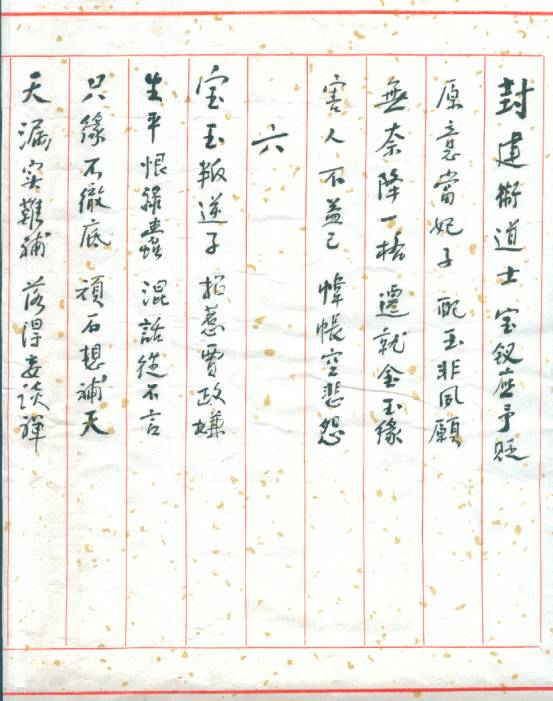 封建衛道士 宝釵應予貶
原意當妃子 配玉非夙願
無奈降一格 遷就金玉緣
害人不益己 幃帳空悲怨
六
宝玉叛逆子 招惹賈政嫌
生平恨祿蠹 混話從不言
只緣不徹底 頑石想補天
天漏实難補 落得妄談禪